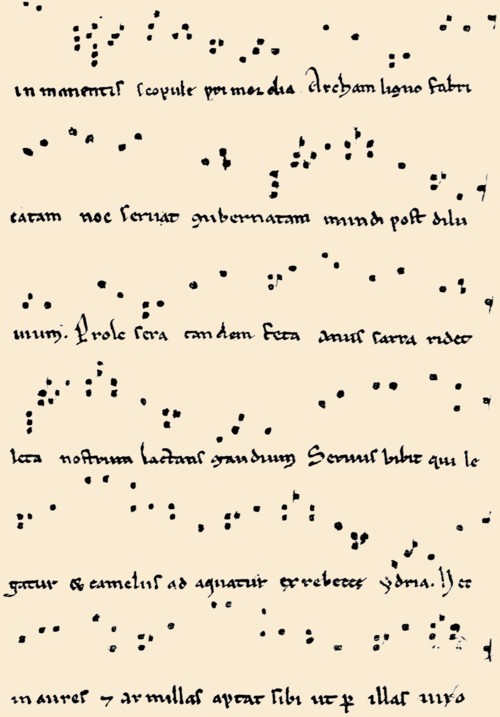 in manentis scopule primordia Archam ligno fabri
catam noe servat gubernatam mundi post dilu
vium. Prole sera tandem feta anus sarra ridet
leta nostrum lactans gaudium Servus bibit qui le
gatur & camelus ad aquatur ex rebecce ydria. Hec
in aures ⁊ armillas aptat sibi ut p̲ illas viro